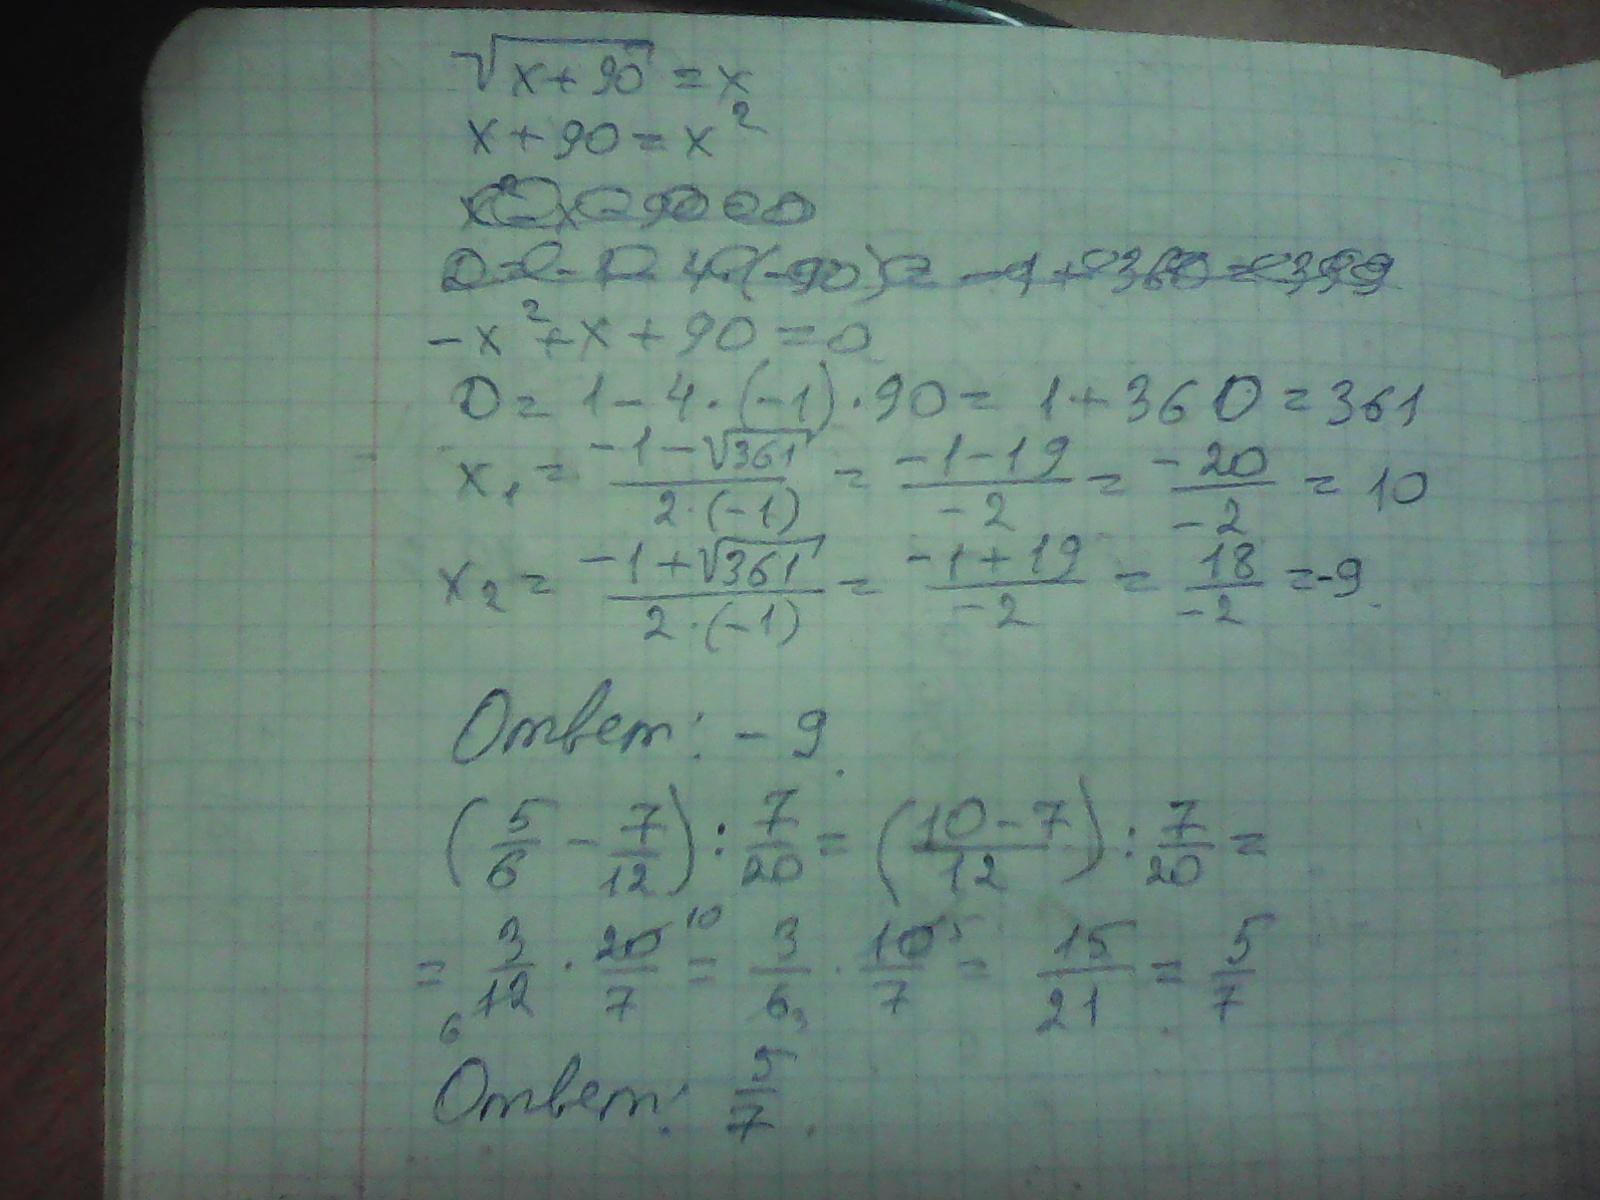 √(x+90) = x
x + 90 = x²
-x² + x + 90 = 0
D = 1 - 4·(-1)·90 = 1 + 360 = 361
x₁ = (-1-√361)/(2·(-1)) = (-1-19)/(-2) = (-20)/(-2) = 10
x₂ = (-1+√361)/(2·(-1)) = (-1+19)/(-2) = 18/(-2) = -9.
Ответ: -9.
(5/6 - 7/12) : 7/20 = ((10-7)/12) : 7/20 =
= 3/12 6 · 20/7 10 = 3/6 3 · 10/7 5 = 15/21 = 5/7
Ответ: 5/7.